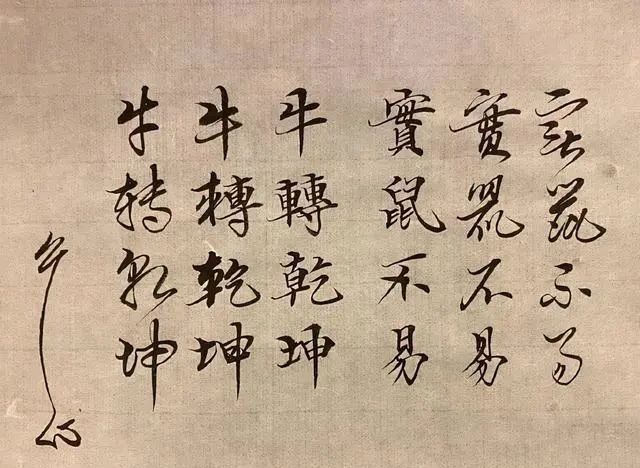 实鼠不易
實鼠不易
實鼠不易
牛轉乾坤
牛轉乾坤
牛转乾坤